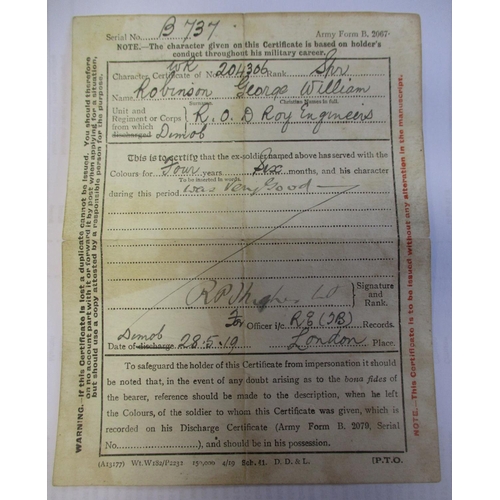 Serial No. B 737 Army Form B. 2067.
NOTE.—The character given on this Certificate is based on holder's
conduct throughout his military career.
WR
Character Certificate of No. 204306 Rank Spr
Name Robinson George William
Surname Christian Names in full.
Unit and
Regiment or Corps R. O. D Roy Engineers
from which
discharged Demob
This is to certify that the ex-soldier named above has served with the
Colours for Four years Six months, and his character
To be inserted in words.
during this period was Very Good
Signature
and
Rank.
For Officer i/c R.E (TB) Records.
Demob
Date of discharge 28.5.19 London Place.
To safeguard the holder of this Certificate from impersonation it should
be noted that, in the event of any doubt arising as to the bona fides of
the bearer, reference should be made to the description, when he left
the Colours, of the soldier to whom this Certificate was given, which is
recorded on his Discharge Certificate (Army Form B. 2079, Serial
No. ), and should be in his possession.
(A13177) Wt. W182/P2231 150,000 4/19 Sch. 61. D. D. & L. (P.T.O.
WARNING.—If this Certificate is lost a duplicate cannot be issued. You should therefore
on no account part with it or forward it by post when applying for a situation,
but should use a copy attested by a responsible person for the purpose.
NOTE.—This Certificate is to be issued without any alteration in the manuscript.